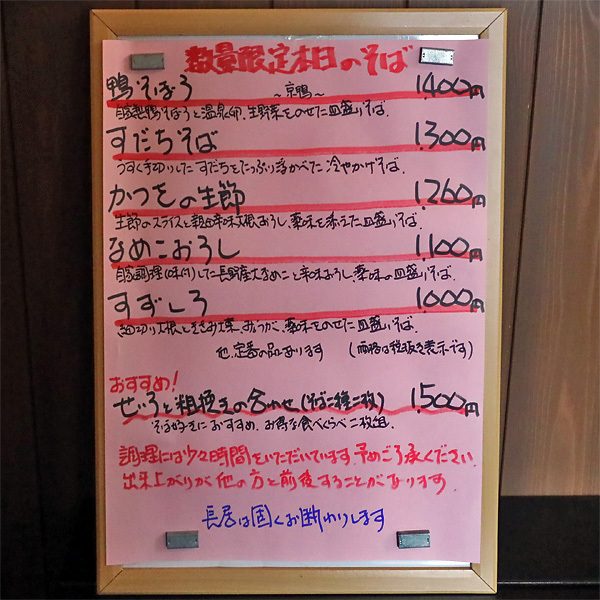 数量限定本日のそば
鴨そぼろ ~京鴨~ 1,400円
自家製鴨そぼろと温泉卵、生野菜をのせた皿盛りそば。
すだちそば 1,300円
うすく手切りしたすだちをたっぷり浮かべた冷やかけそば。
かつをの生節 1,260円
生節のスライスと親田辛味大根おろし、薬味を添えた皿盛りそば。
なめこおろし 1,100円
自家調理(味付)した長野産大なめこと辛味おろし、薬味の皿盛りそば。
すずしろ 1,000円
細切り大根ときざみ揚、みつば、薬味をのせた皿盛りそば。
他、定番の品あります (価格は税抜き表示です)
おすすめ!
せいろと粗挽きの合わせ(そば二種二枚) 1,500円
そば好きにおすすめ、お得な食べくらべ二枚組。
調理には少々時間をいただいています。予めご了承ください。
出来上がりが他の方と前後することがあります。
長居は固くお断わりします